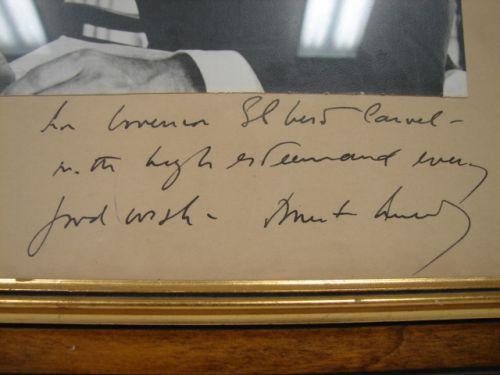 For Governor Elbert Carvel –
with high esteem and every
good wish –